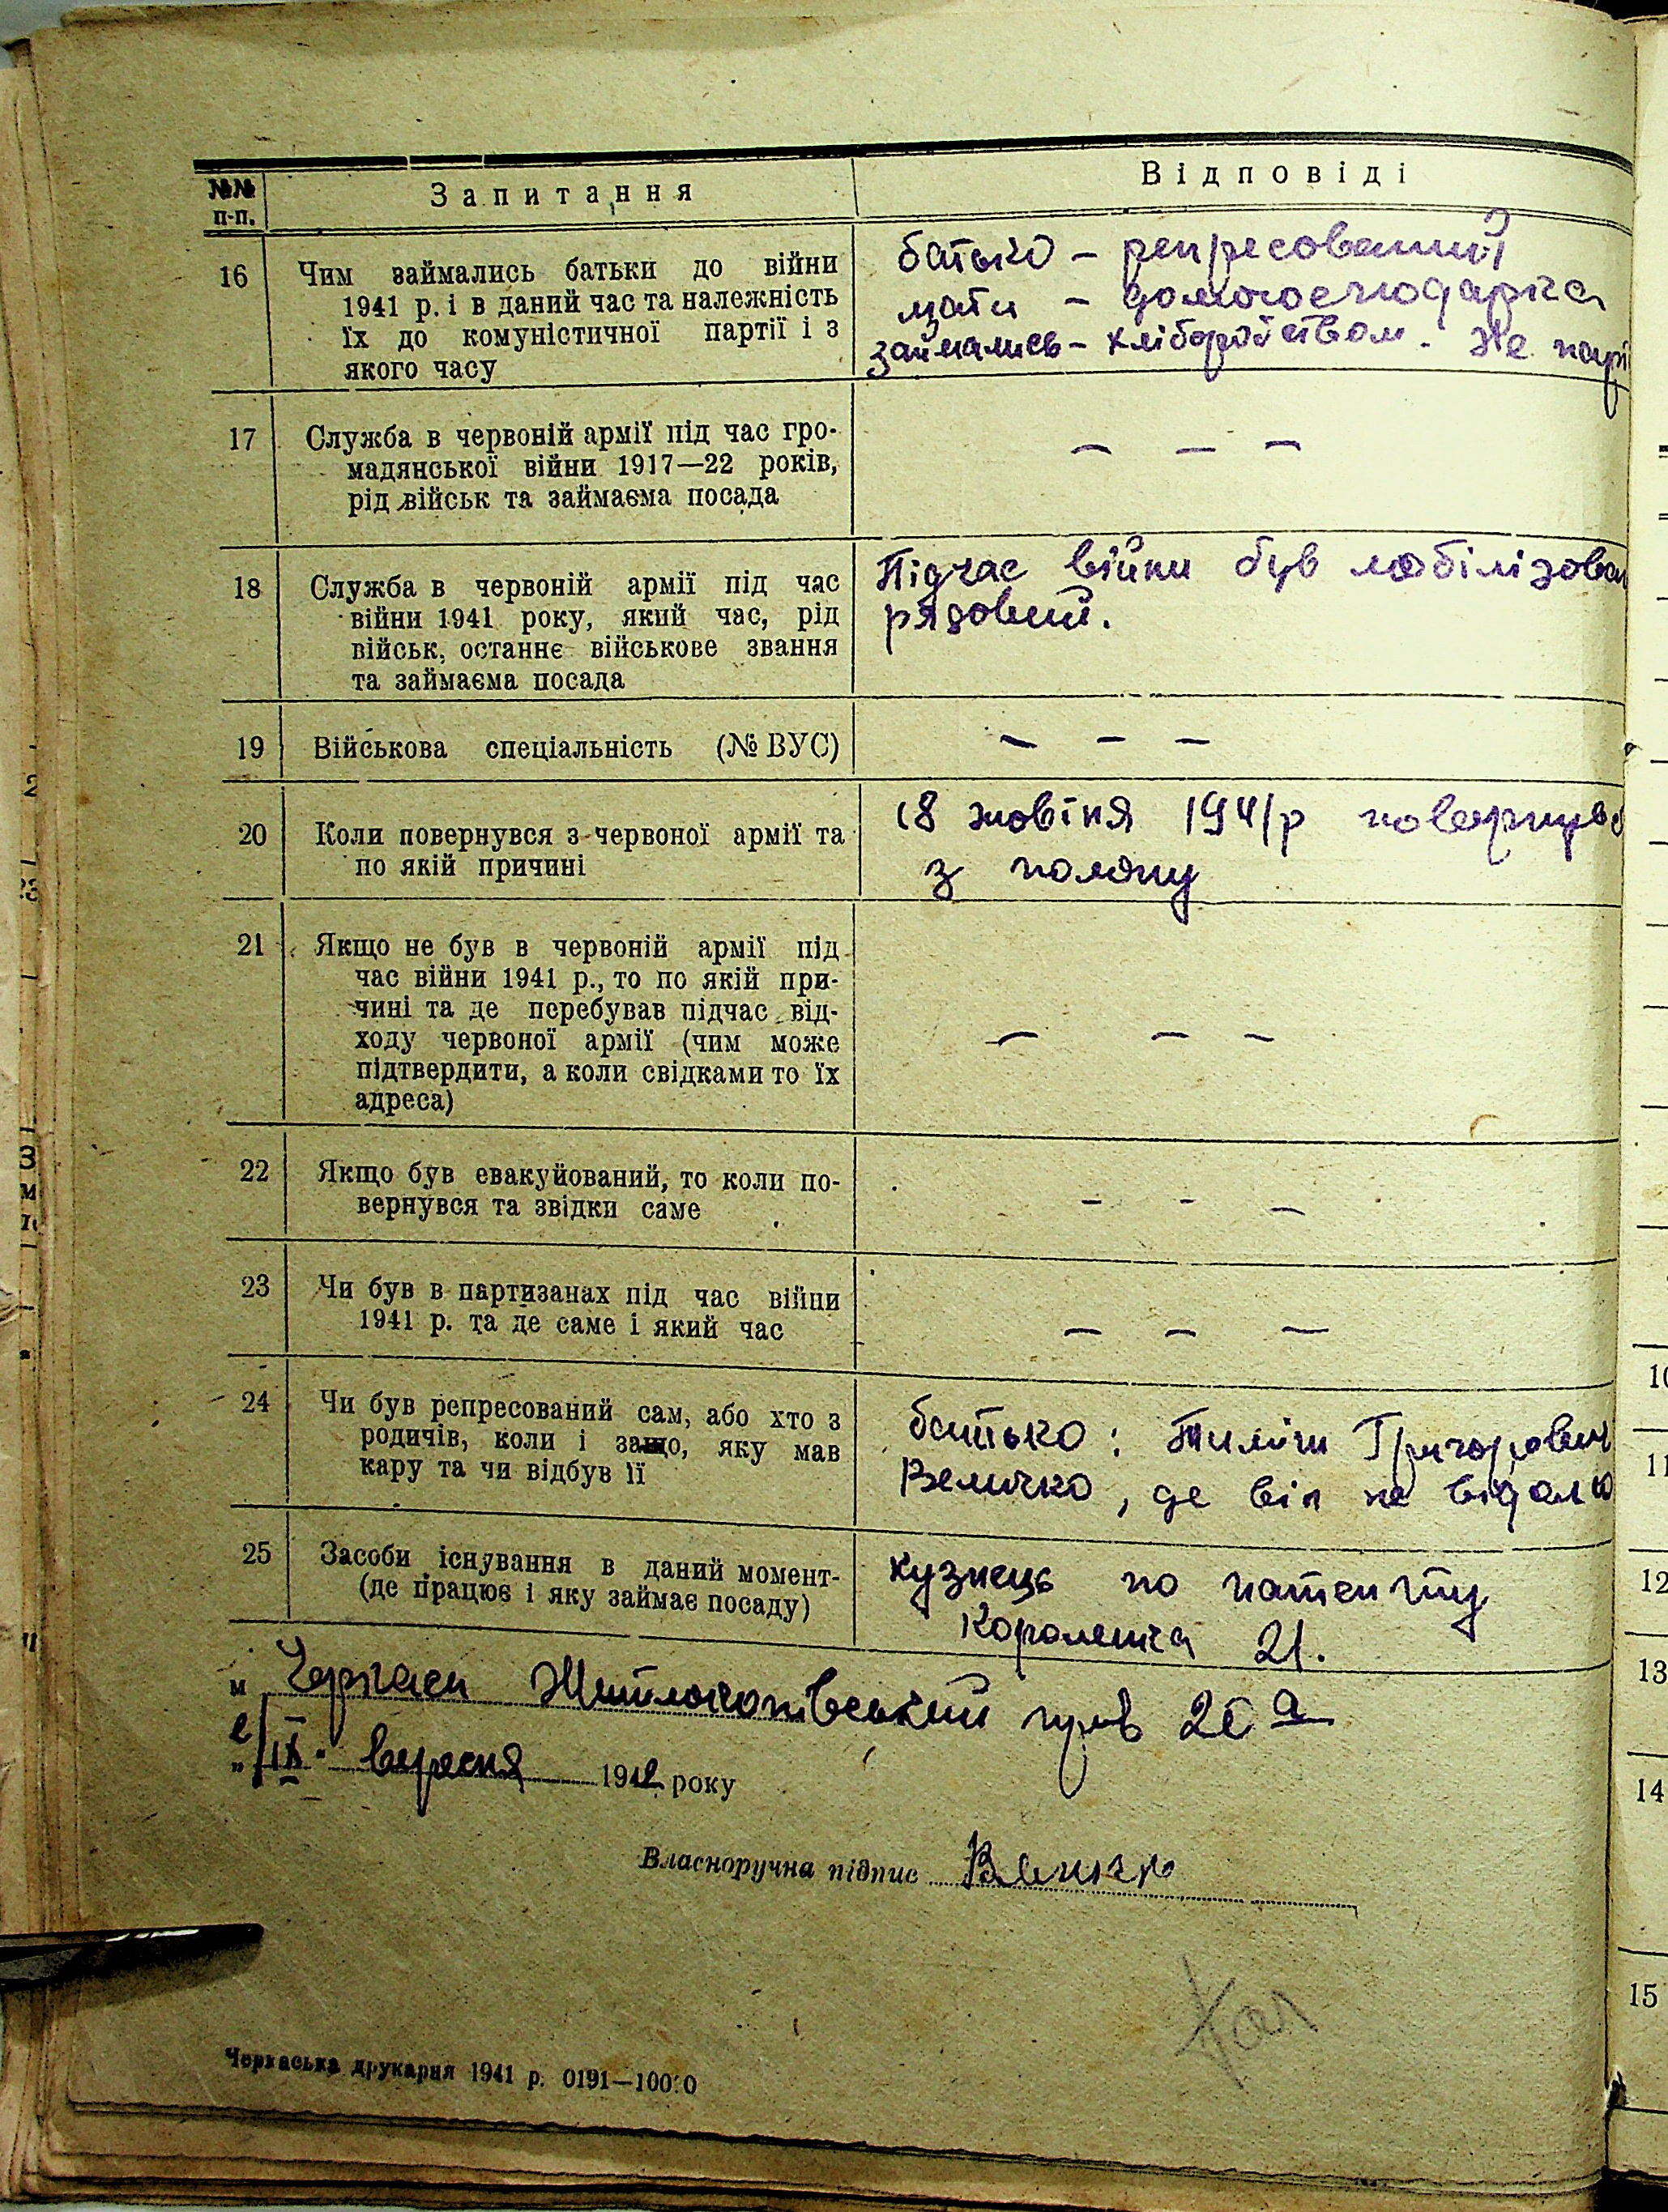 №№ п-п.
Запитання
Відповіді
16
Чим займались батьки до війни
1941 р. і в даний час та належність
їх до комуністичної партії і з
якого часу
батько – репресований
мати – домогосподарка
займались – хліборобством. Не парт
17
Служба в червоній армії під час гро-
мадянської війни 1917—22 років,
рід військ та займаєма посада
— — —
18
Служба в червоній армії під час
війни 1941 року, який час, рід
військ, останнє військове звання
та займаєма посада
Підчас війни був мобілізован
рядовий.
19
Військова спеціальність (№ ВУС)
— — —
20
Коли повернувся з червоної армії та
по якій причині
18 жовтня 1941 р повернувс
з полону
21
Якщо не був в червоній армії під
час війни 1941 р., то по якій при-
чині та де перебував підчас від-
ходу червоної армії (чим може
підтвердити, а коли свідками то їх
адреса)
— — —
22
Якщо був евакуйований, то коли по-
вернувся та звідки саме
— — —
23
Чи був в партизанах під час війни
1941 р. та де саме і який час
— — —
24
Чи був репресований сам, або хто з
родичів, коли і защо, яку мав
кару та чи відбув її
батько: Григорович
Величко, де він не відомо
25
Засоби існування в даний момент-
(де працює і яку займає посаду)
кузнець по патенту
Короленка 21.
м Черкаси 20 а
IX вересня 1942 року
Власноручна підпис Величко
Черкаська друкарня 1941 р. 0191—10000
2
23
З
м
10
11
12
13
14
15